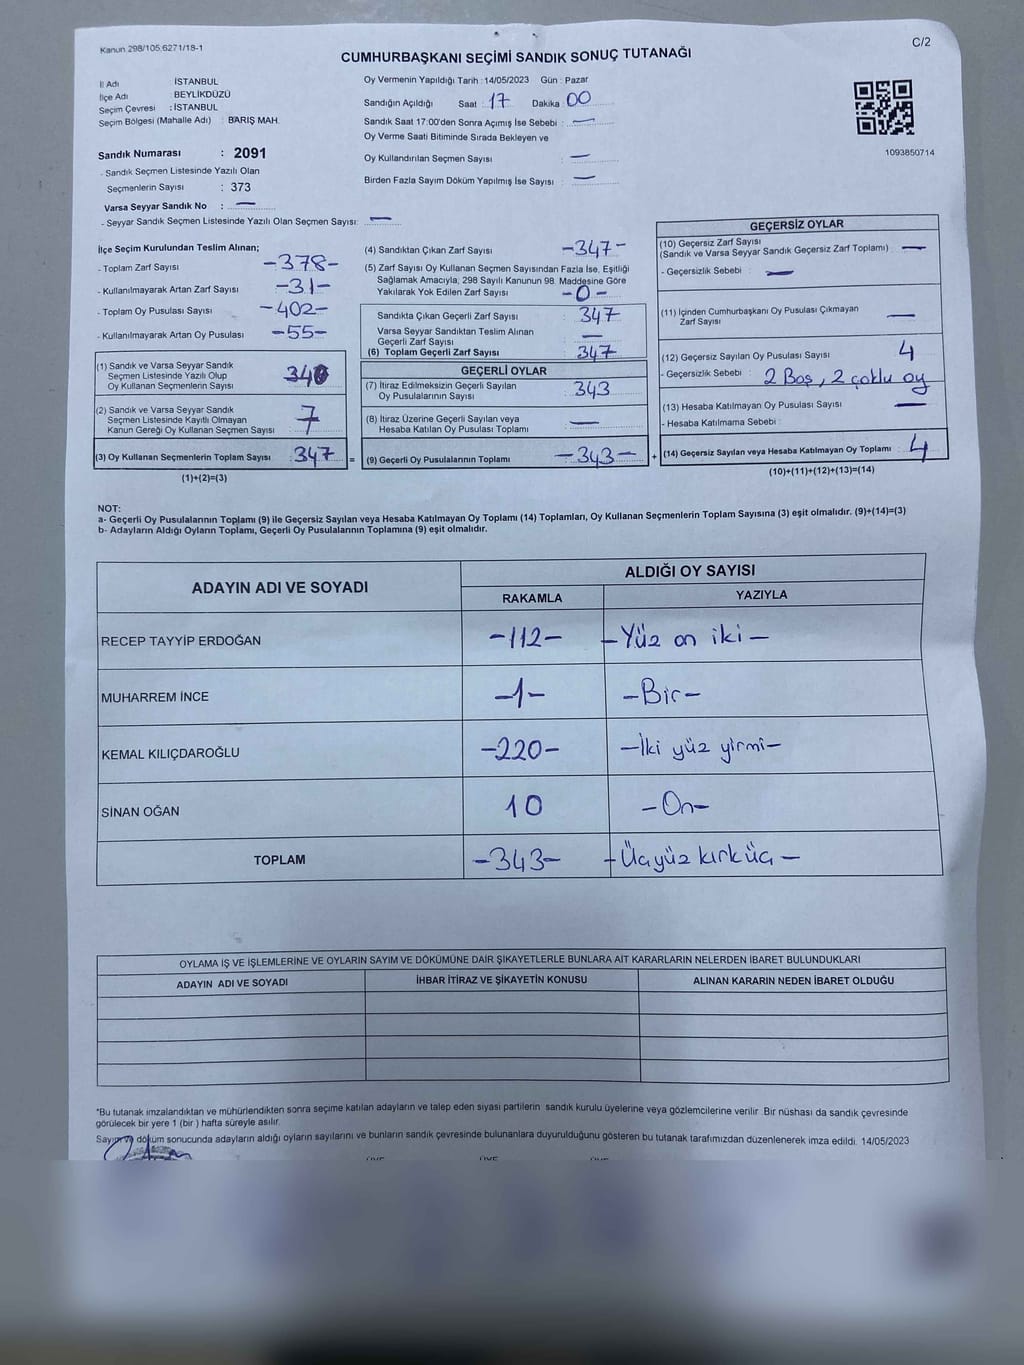 Kanun 298/105,6271/18-1
C/2
CUMHURBAŞKANI SEÇİMİ SANDIK SONUÇ TUTANAĞI
İl Adı İSTANBUL
İlçe Adı BEYLİKDÜZÜ
Seçim Çevresi : İSTANBUL
Seçim Bölgesi (Mahalle Adı) : BARIŞ MAH.
Sandık Numarası : 2091
- Sandık Seçmen Listesinde Yazılı Olan
Seçmenlerin Sayısı : 373
Varsa Seyyar Sandık No : —
- Seyyar Sandık Seçmen Listesinde Yazılı Olan Seçmen Sayısı: —
Oy Vermenin Yapıldığı Tarih : 14/05/2023 Gün : Pazar
Sandığın Açıldığı Saat : 17 Dakika : 00
Sandık Saat 17:00'den Sonra Açımış İse Sebebi : —
Oy Verme Saati Bitiminde Sırada Bekleyen ve
Oy Kullandırılan Seçmen Sayısı : —
Birden Fazla Sayım Döküm Yapılmış İse Sayısı : —
1093850714
İlçe Seçim Kurulundan Teslim Alınan;
- Toplam Zarf Sayısı -378-
- Kullanılmayarak Artan Zarf Sayısı -31-
- Toplam Oy Pusulası Sayısı -402-
- Kullanılmayarak Artan Oy Pusulası -55-
(1) Sandık ve Varsa Seyyar Sandık
Seçmen Listesinde Yazılı Olup
Oy Kullanan Seçmenlerin Sayısı 340
(2) Sandık ve Varsa Seyyar Sandık
Seçmen Listesinde Kayıtlı Olmayan
Kanun Gereği Oy Kullanan Seçmen Sayısı 7
(3) Oy Kullanan Seçmenlerin Toplam Sayısı : 347 =
(1)+(2)=(3)
(4) Sandıktan Çıkan Zarf Sayısı -347-
(5) Zarf Sayısı Oy Kullanan Seçmen Sayısından Fazla İse, Eşitliği
Sağlamak Amacıyla; 298 Sayılı Kanunun 98. Maddesine Göre
Yakılarak Yok Edilen Zarf Sayısı -0-
Sandıkta Çıkan Geçerli Zarf Sayısı : 347
Varsa Seyyar Sandıktan Teslim Alınan
Geçerli Zarf Sayısı : —
(6) Toplam Geçerli Zarf Sayısı : 347
GEÇERLİ OYLAR
(7) İtiraz Edilmeksizin Geçerli Sayılan
Oy Pusulalarının Sayısı : 343
(8) İtiraz Üzerine Geçerli Sayılan veya
Hesaba Katılan Oy Pusulası Toplamı : —
(9) Geçerli Oy Pusulalarının Toplamı : -343- +
GEÇERSİZ OYLAR
(10) Geçersiz Zarf Sayısı
(Sandık ve Varsa Seyyar Sandık Geçersiz Zarf Toplamı) : —
- Geçersizlik Sebebi : —
(11) İçinden Cumhurbaşkanı Oy Pusulası Çıkmayan
Zarf Sayısı —
(12) Geçersiz Sayılan Oy Pusulası Sayısı : 4
- Geçersizlik Sebebi : 2 Boş, 2 çoklu oy
(13) Hesaba Katılmayan Oy Pusulası Sayısı : —
- Hesaba Katılmama Sebebi :
(14) Geçersiz Sayılan veya Hesaba Katılmayan Oy Toplamı : 4
(10)+(11)+(12)+(13)=(14)
NOT:
a- Geçerli Oy Pusulalarının Toplamı (9) ile Geçersiz Sayılan veya Hesaba Katılmayan Oy Toplamı (14) Toplamları, Oy Kullanan Seçmenlerin Toplam Sayısına (3) eşit olmalıdır. (9)+(14)=(3)
b- Adayların Aldığı Oyların Toplamı, Geçerli Oy Pusulalarının Toplamına (9) eşit olmalıdır.
ADAYIN ADI VE SOYADI
ALDIĞI OY SAYISI
RAKAMLA YAZIYLA
RECEP TAYYİP ERDOĞAN -112- -Yüz on iki-
MUHARREM İNCE -1- -Bir-
KEMAL KILIÇDAROĞLU -220- -İki yüz yirmi-
SİNAN OĞAN 10 -On-
TOPLAM -343- -Üçyüz kırküç-
OYLAMA İŞ VE İŞLEMLERİNE VE OYLARIN SAYIM VE DÖKÜMÜNE DAİR ŞİKAYETLERLE BUNLARA AİT KARARLARIN NELERDEN İBARET BULUNDUKLARI
ADAYIN ADI VE SOYADI İHBAR İTİRAZ VE ŞİKAYETİN KONUSU ALINAN KARARIN NEDEN İBARET OLDUĞU
*Bu tutanak imzalandıktan ve mühürlendikten sonra seçime katılan adayların ve talep eden siyasi partilerin sandık kurulu üyelerine veya gözlemcilerine verilir. Bir nüshası da sandık çevresinde
görülecek bir yere 1 (bir) hafta süreyle asılır.
Sayım ve döküm sonucunda adayların aldığı oyların sayılarını ve bunların sandık çevresinde bulunanlara duyurulduğunu gösteren bu tutanak tarafımızdan düzenlenerek imza edildi. 14/05/2023